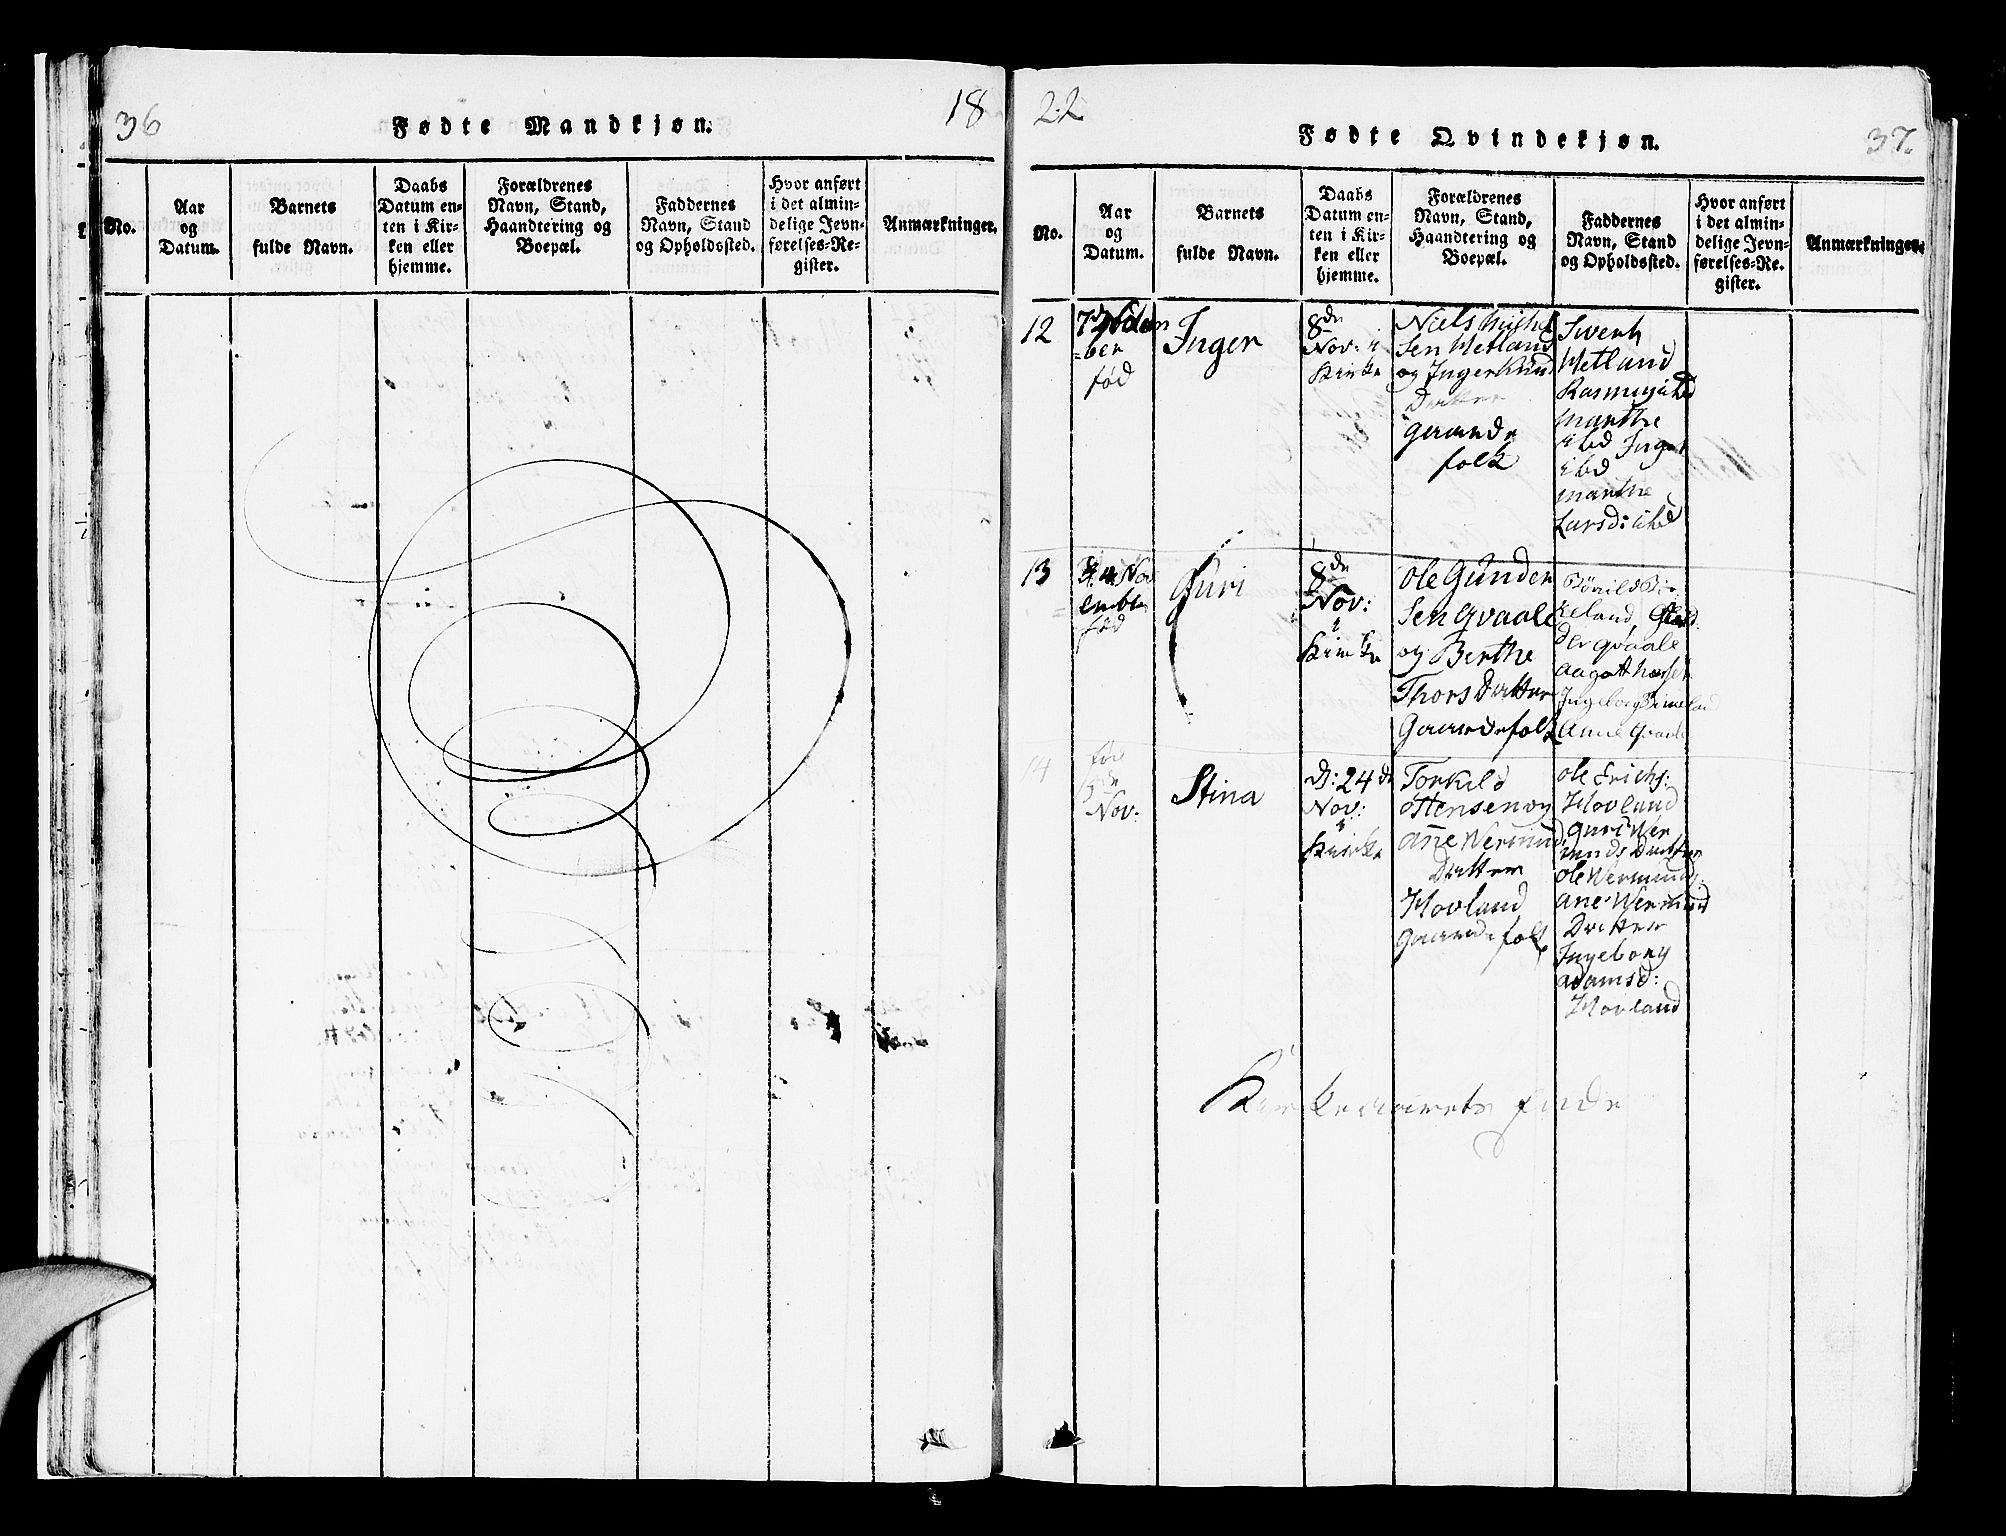 36
Fødte Mandkjøn.
18
No.
Aar
og
Datum.
Barnets
fulde Navn.
Daabs
Datum en-
ten i Kir-
ken eller
hjemme.
Forældrenes
Navn, Stand,
Haandtering og
Boepæl.
Faddernes
Navn, Stand
og Opholdssted.
Hvor anført
i det almin-
delige Jevn-
førelses-Re-
gister.
Anmærkninger.
22
Fødte Qvindekjøn.
37.
No.
Aar
og
Datum.
Barnets
fulde Navn.
Daabs
Datum en-
ten i Kir-
ken eller
hjemme.
Forældrenes
Navn, Stand,
Haandtering og
Boepæl.
Faddernes
Navn, Stand
og Opholdssted.
Hvor anført
i det almin-
delige Jevn-
førelses-Re-
gister.
Anmærkninger.
12
=ber
fød
Inger
8de
Nov: i
Kirke
Niels
Sen Hetland
og Inger Knud
Datter
Gaarde
folk
Swerk
Hetland
Rasmus ibd
Marthe
ibd Inger
ibd
Marthe
Larsd: ibd
13
Nov
embr
fød
Guri
8de
Nov:
i
Kirke
Ole Gunder
Sen Qvaale
og Berthe
Thors Datter
Gaardefolk
keland,
der Qvaale
Aagot
Ingeborg
Anne Qvaale
14
fød
de
Nov.
Stina
D: 24de
Nov:
i
Kirke
Torkild
Ottensen og
Ane Wermund
Datter
Hovland
Gaardefolk
Ole Erichs:
Hovland
Guri Wer
munds Datter
Ole Wermunds:
Ane Wermund
Datter
Ingeborg
Adamsd:
Hovland
Kirkeaarets Ende